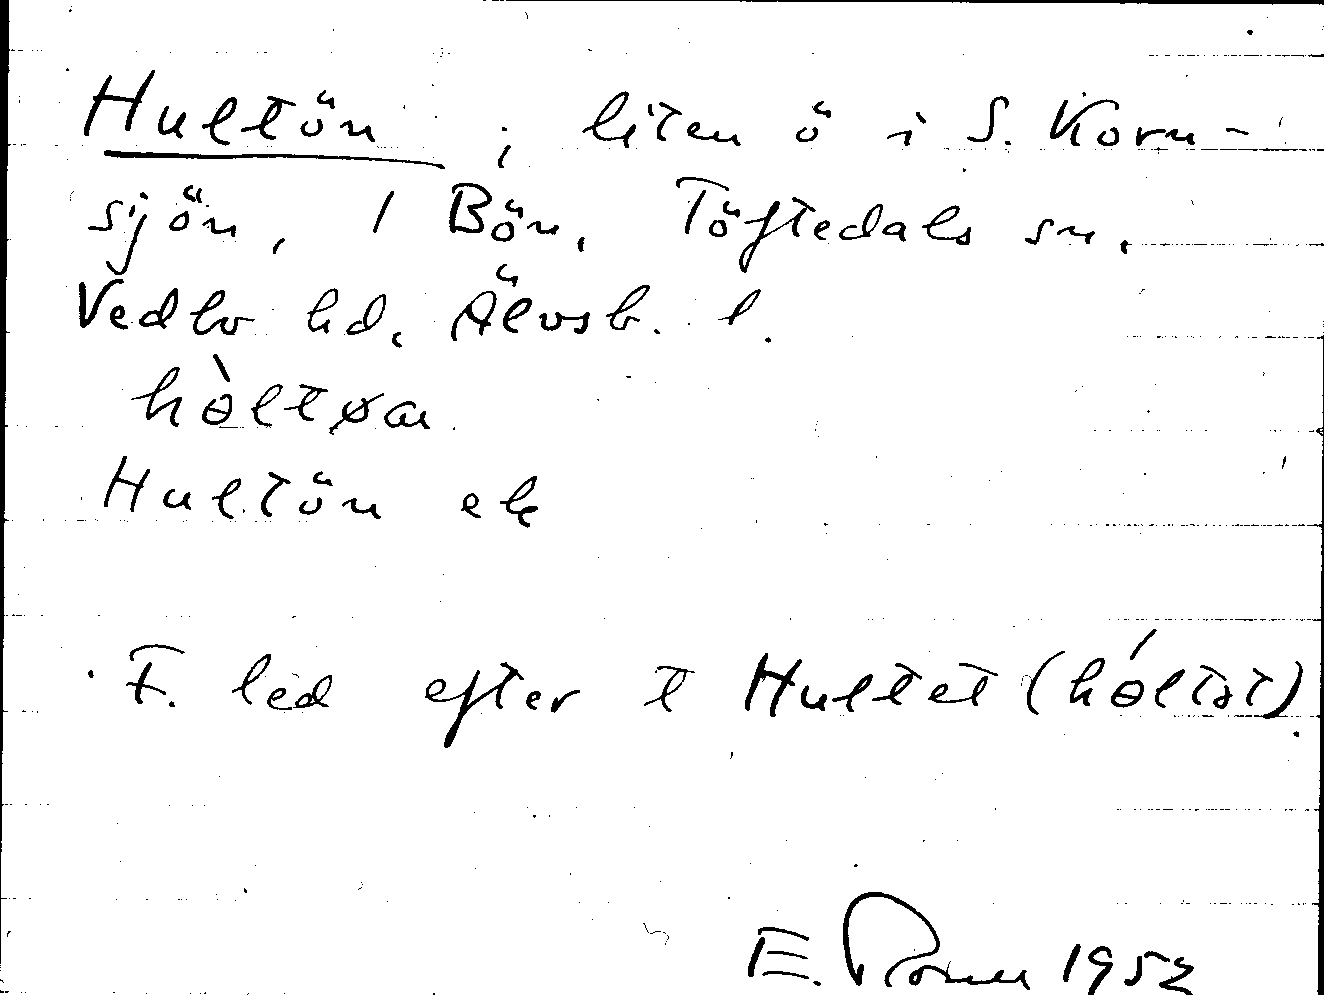 Hultön ; liten ö i S. Korn-
sjön, 1 Bön, Töftedals sn.
Vedbo hd, Älvsb. l.
Hultön ek
F. led efter t Hultet (hɵ́ltət).
E. 1952